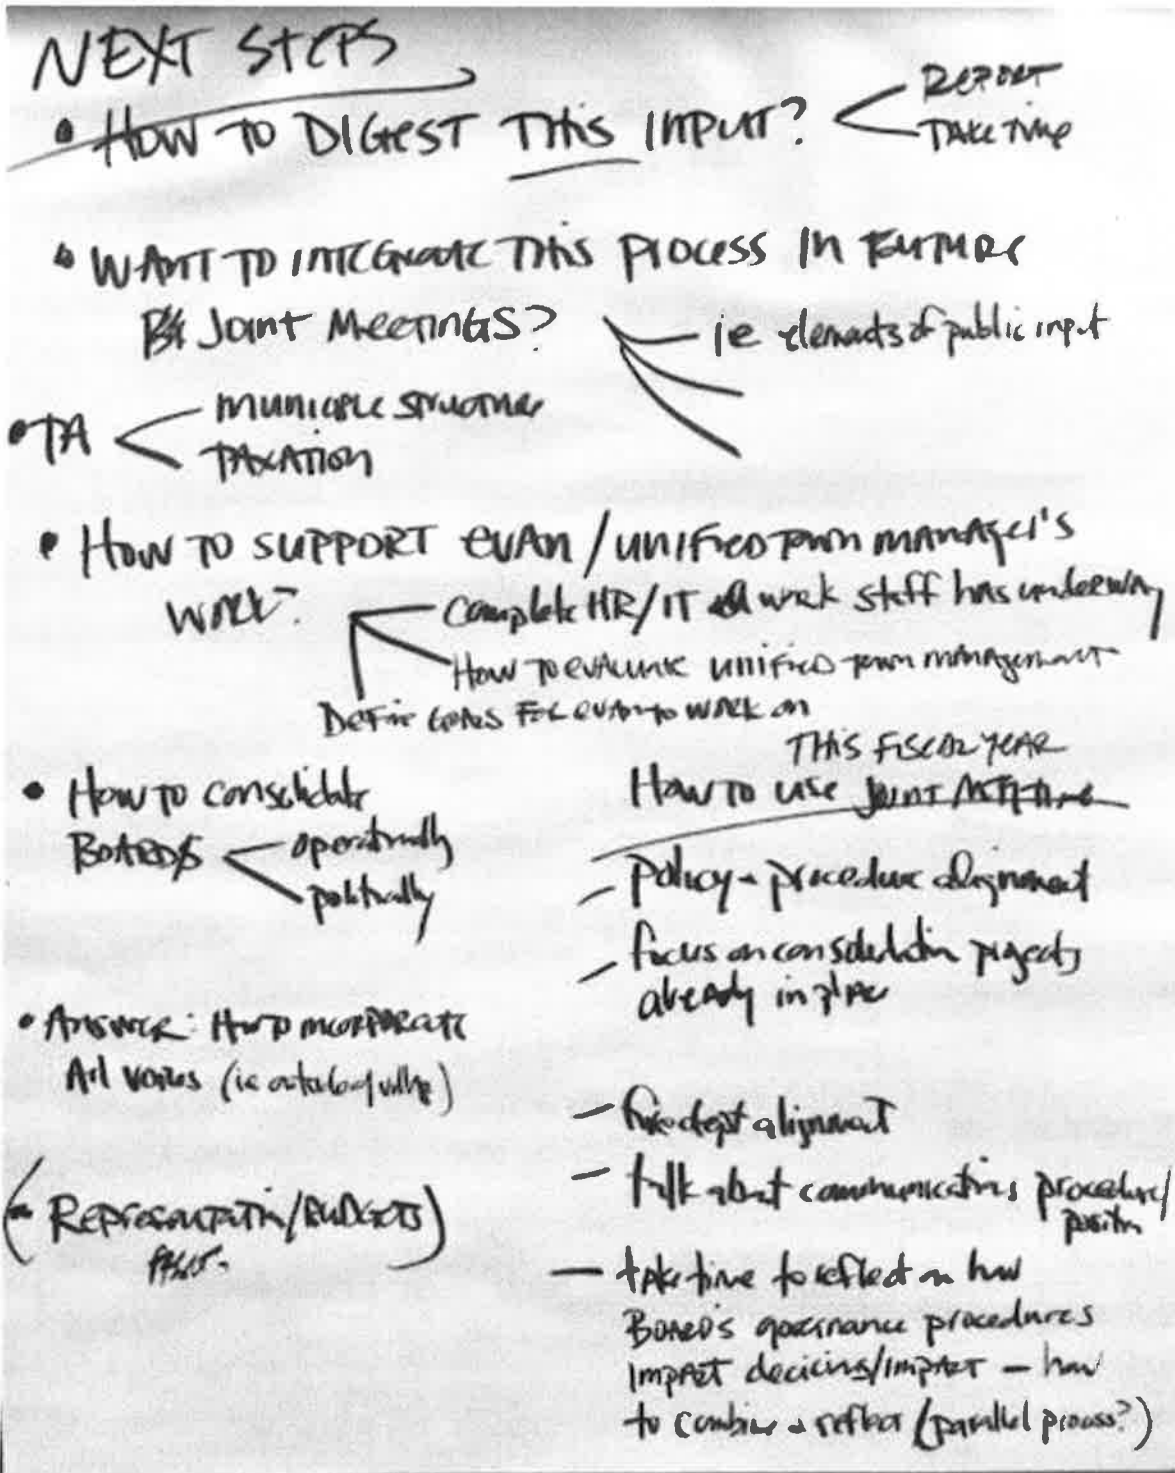 NEXT STEPS
• HOW TO DIGEST THIS INPUT?
REPORT
TAKE TIME
• WANT TO INTEGRATE THIS PROCESS IN FUTURE
Joint MEETINGS?
ie elements of public input
• TA
MUNICIPLE STRUCTURE
TAXATION
• HOW TO SUPPORT EVAN/UNIFIED TOWN MANAGER'S
WORK?
Complete HR/IT work staff has underway
HOW TO EVALUATE UNIFIED TOWN MANAGEMENT
DEFINE GOALS FOR EVAN TO WORK ON
• HOW TO consolidate
BOARDS
operationally
politically
• ANSWER: HOW TO INCORPORATE
All VOICES (ie outside of village)
(- REPRESENTATION/BUDGETS)
THIS FISCAL YEAR
HOW TO USE JOINT MTG TIME
- Policy + procedure alignment
- focus on consolidation projects
already in place
- fire dept alignment
- talk about communications procedure/
position
- take time to reflect on how
BOARDS governance procedures
IMPACT /IMPACT - how
to combine + reflect (parallel process?)